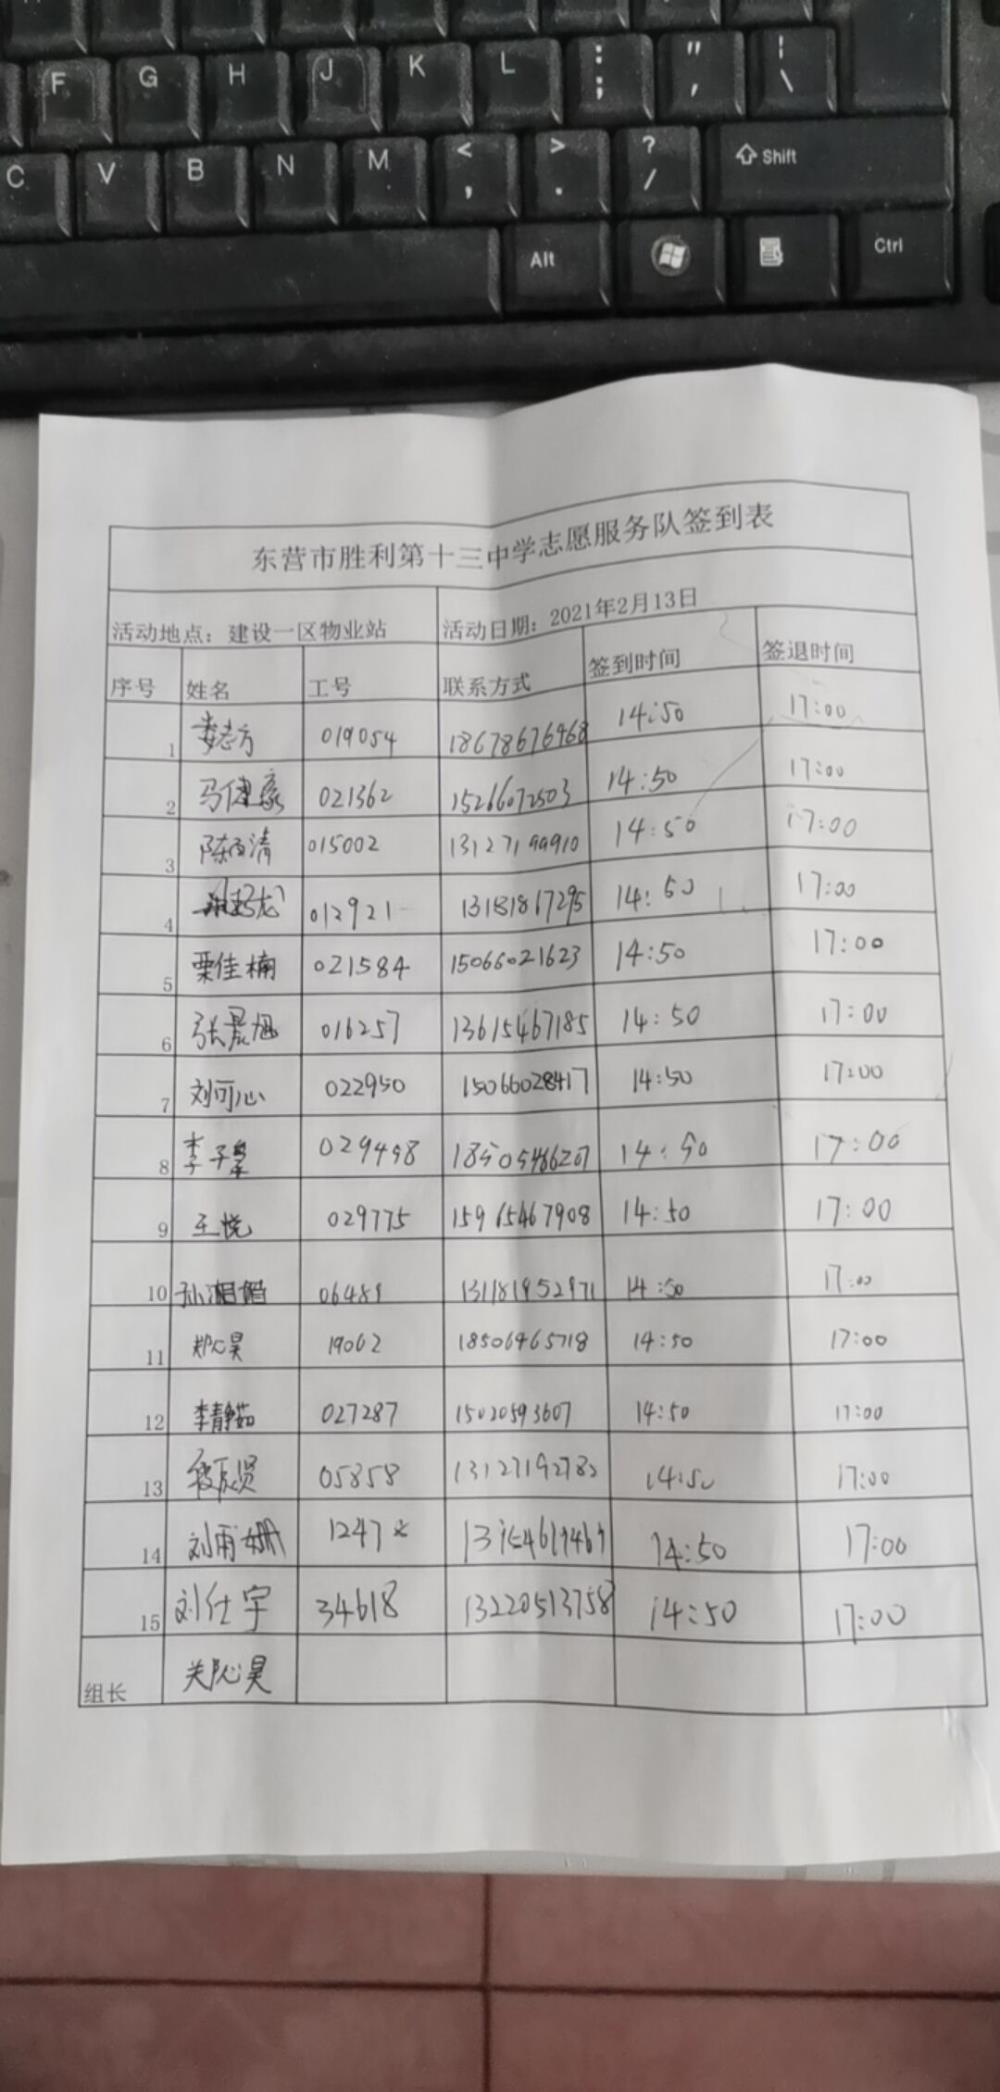 F G H J K L : ; " , ¦ \
C V B N M < , > . ? / Shift
Alt Ctrl
东营市胜利第十三中学志愿服务队签到表
活动地点：建设一区物业站 活动日期：2021年2月13日
序号 姓名 工号 联系方式 签到时间 签退时间
1 019054 18678676968 14:50 17:00
2 马健豪 021362 15266072503 14:50 17:00
3 015002 13127199910 14:50 17:00
4 012921 13181867295 14:50 17:00
5 栗佳楠 021584 15066021623 14:50 17:00
6 张晨旭 016257 13615467185 14:50 17:00
7 刘可心 022950 15066028417 14:50 17:00
8 李子 029498 18505466207 14:50 17:00
9 王悦 029775 15965467908 14:50 17:00
10 06489 14:50 17:00
11 19062 18506465718 14:50 17:00
12 李静茹 027287 15020593607 14:50 17:00
13 05858 13127192782 14:50 17:00
14 刘雨姗 1247 14:50 17:00
15 刘仕宇 34618 13220513758 14:50 17:00
组长